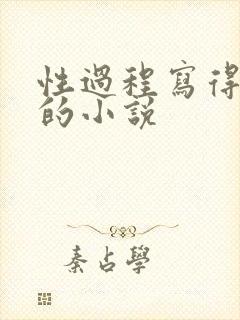 性過程寫得
的小說
秦占學